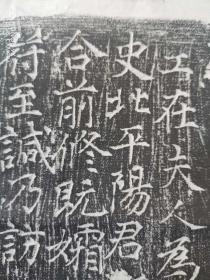 工在夫人爲
史北平陽君
合前修既孀
符至誠乃訪